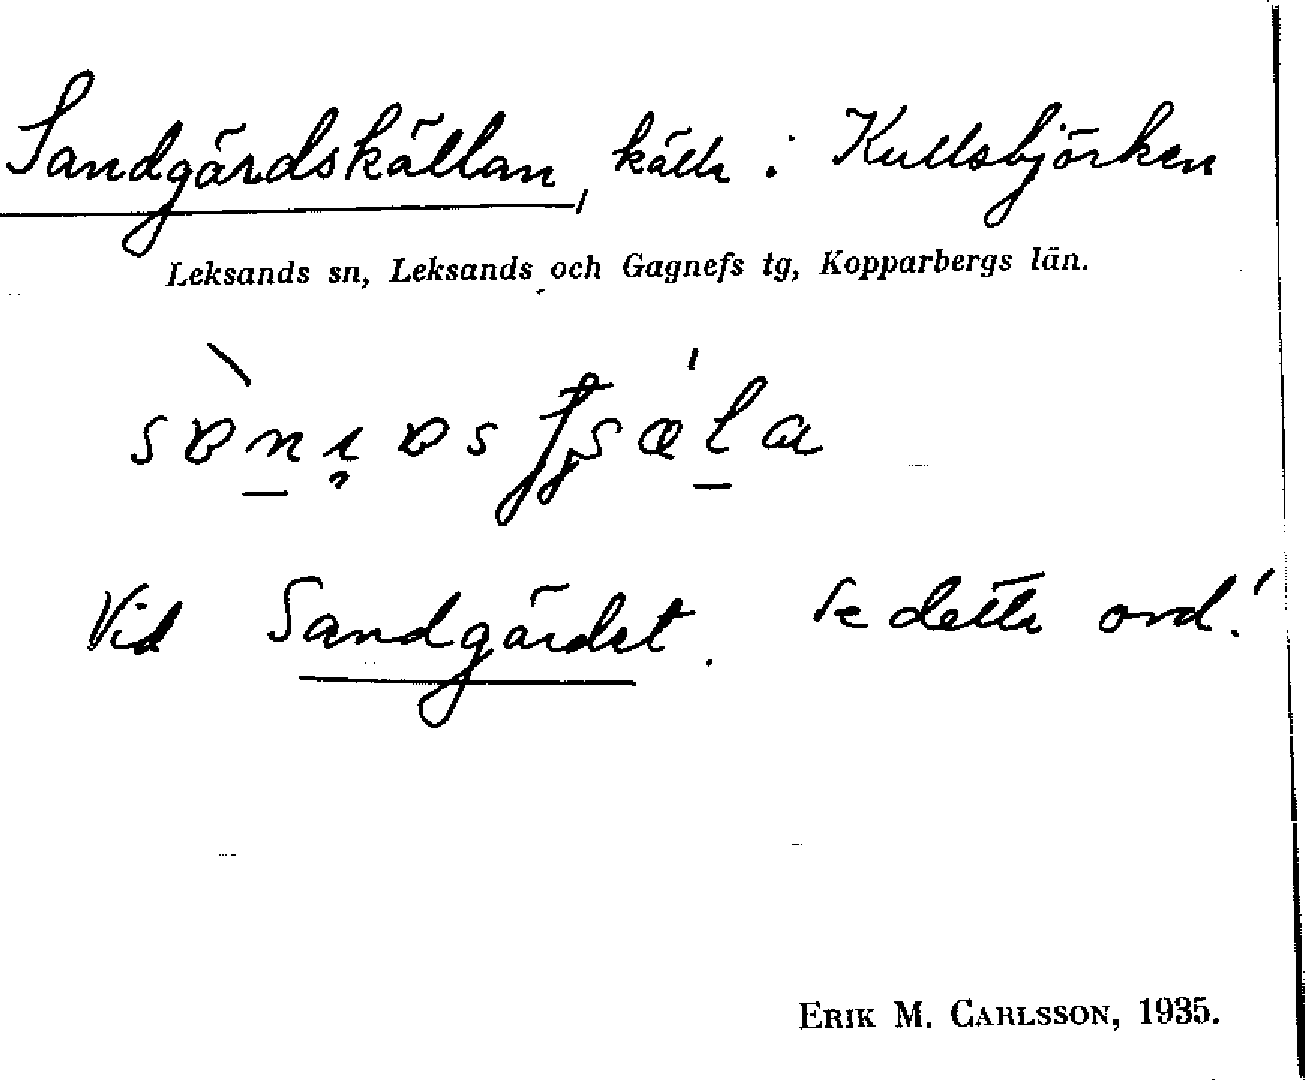 Sandgärdskällan, källa i Kullsbjörken
Leksands sn, Leksands och Gagnefs tg, Kopparbergs län.
Vid Sandgärdet. Se detta ord!
ERIK M. CARLSSON, 1935.